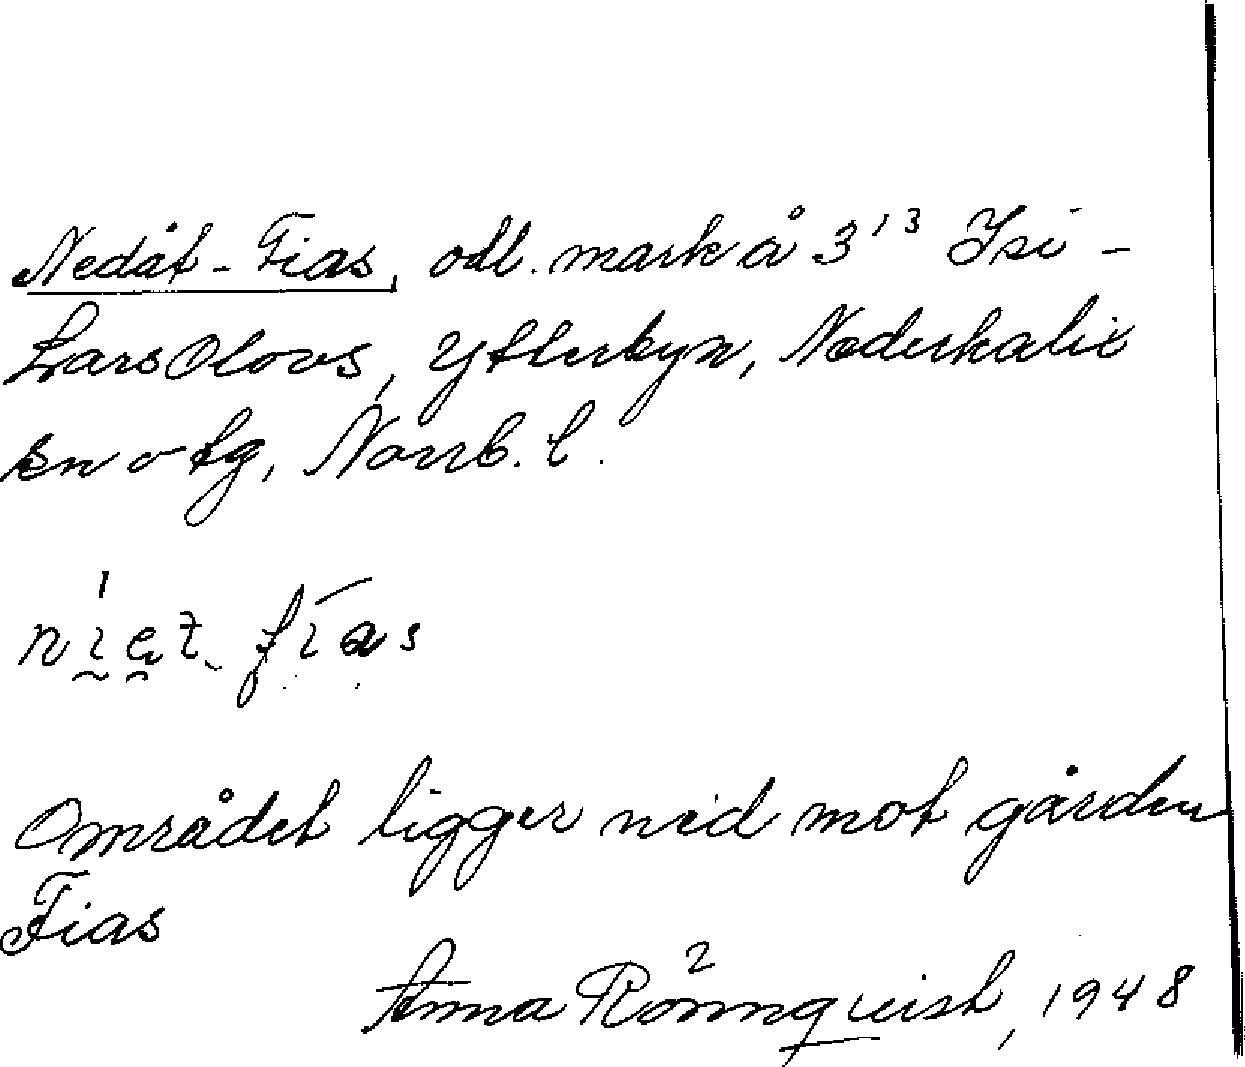 Nedåt-Fias, odl. mark å 3¹³ Isi-
LarsOlovs, Ytterbyn, Nederkalix
sn o tg, Norrb. l.
Området ligger ned mot gården
Fias
Anna Rönnqvist, 1948